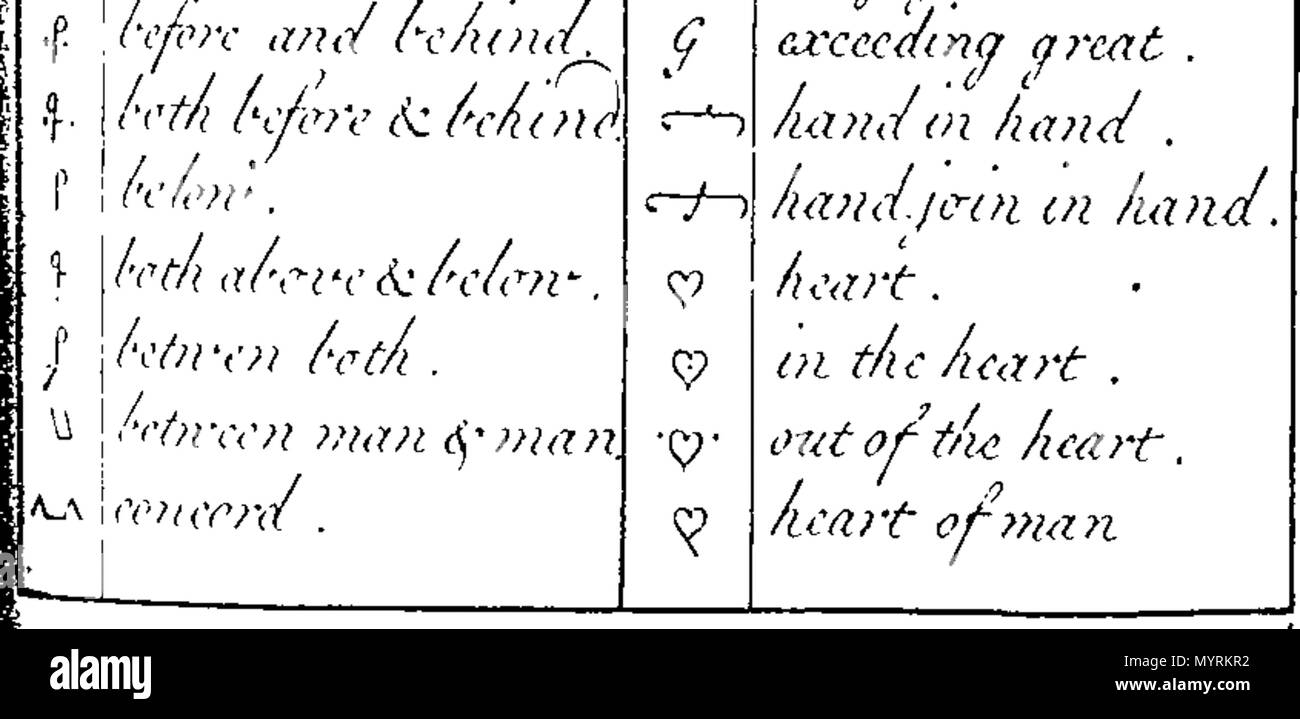 before and behind.
both before & behind.
below.
both above & below.
betwen both.
between man & man.
concord.
G exceeding great.
hand in hand.
hand join in hand.
heart.
in the heart.
out of the heart.
heart of man
alamy
Image ID: MYRKR2
www.alamy.com